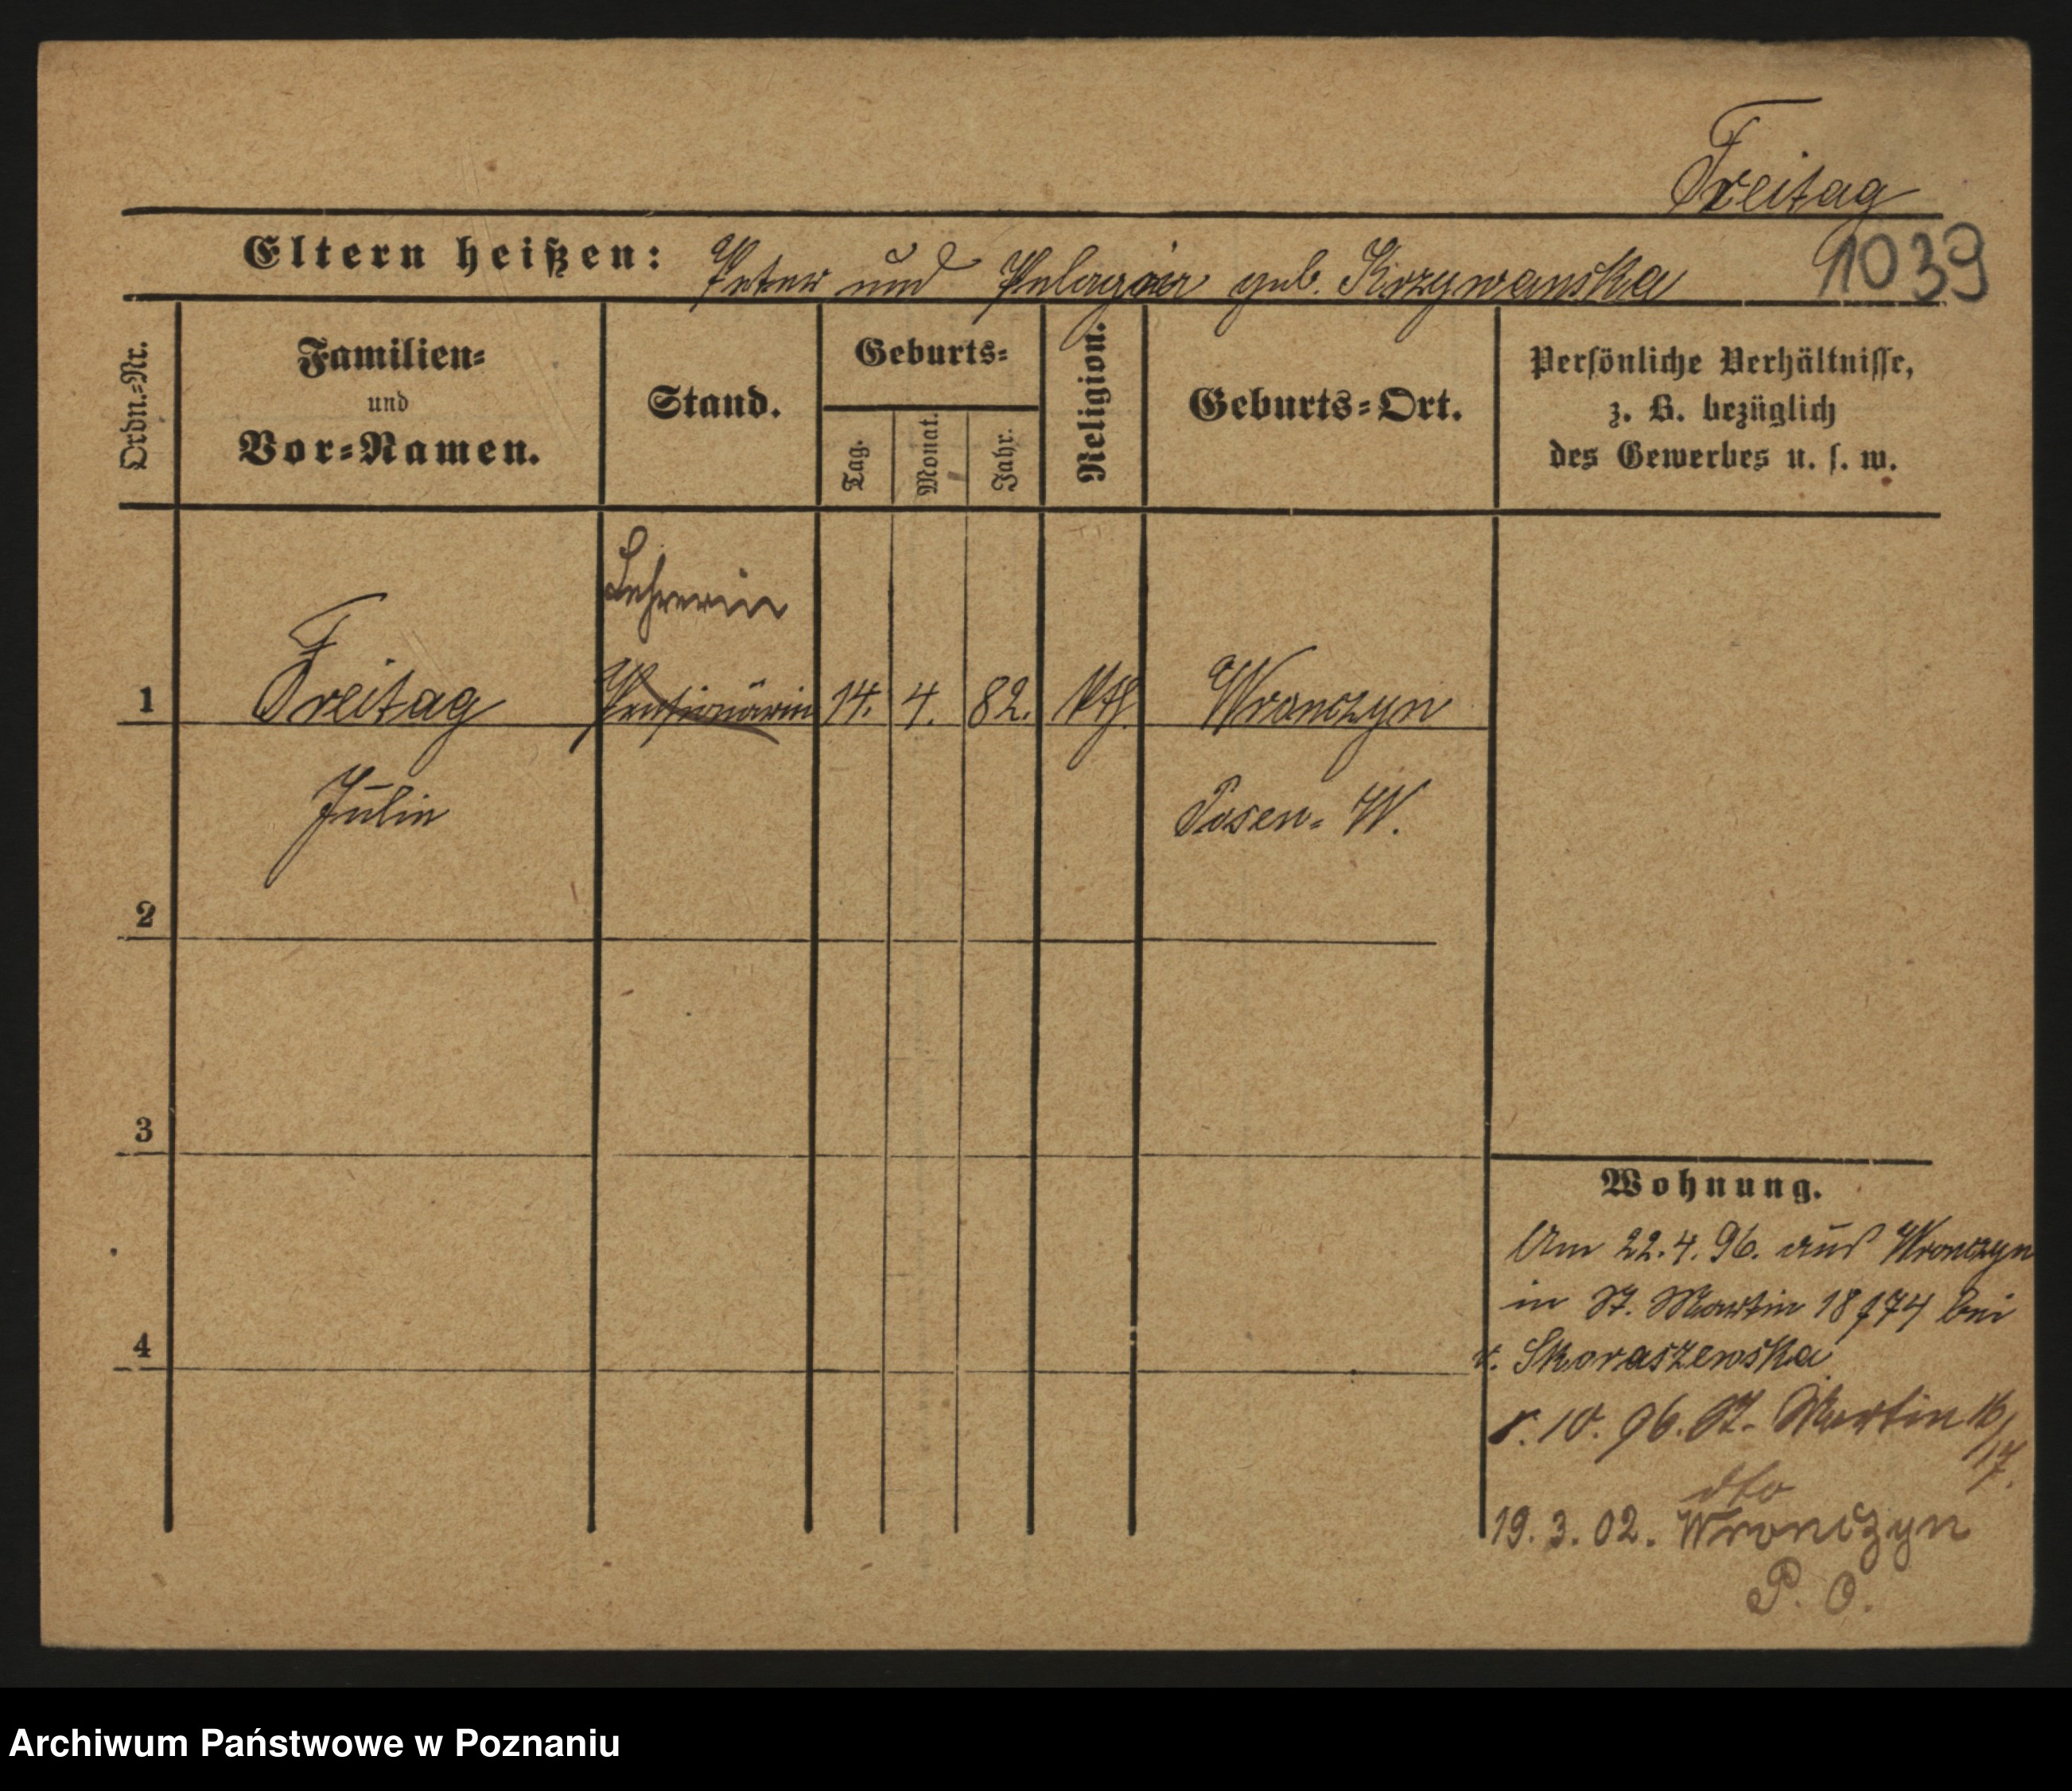 Freitag
Eltern heißen: Peter und Pelagia geb. Krzywanska
1039
Ordn.=Nr.
Familien=
und
Vor=Namen.
Stand.
Geburts=
Tag.
Monat.
Jahr.
Religion.
Geburts=Ort.
Persönliche Verhältnisse,
z. B. bezüglich
des Gewerbes u. s. w.
Lehrerin
1 Freitag Pensionärin 14. 4. 82. kth. Wronczyn
Julie Posen=W.
2
3
4
Wohnung.
Am 22.4.96. aus Wronczyn
in St. Martin 18 174 bei
v. Skoraszewska
10. 96. St. Martin 16/
17.
dto
19. 3. 02. Wronczyn
P. O.
Archiwum Państwowe w Poznaniu